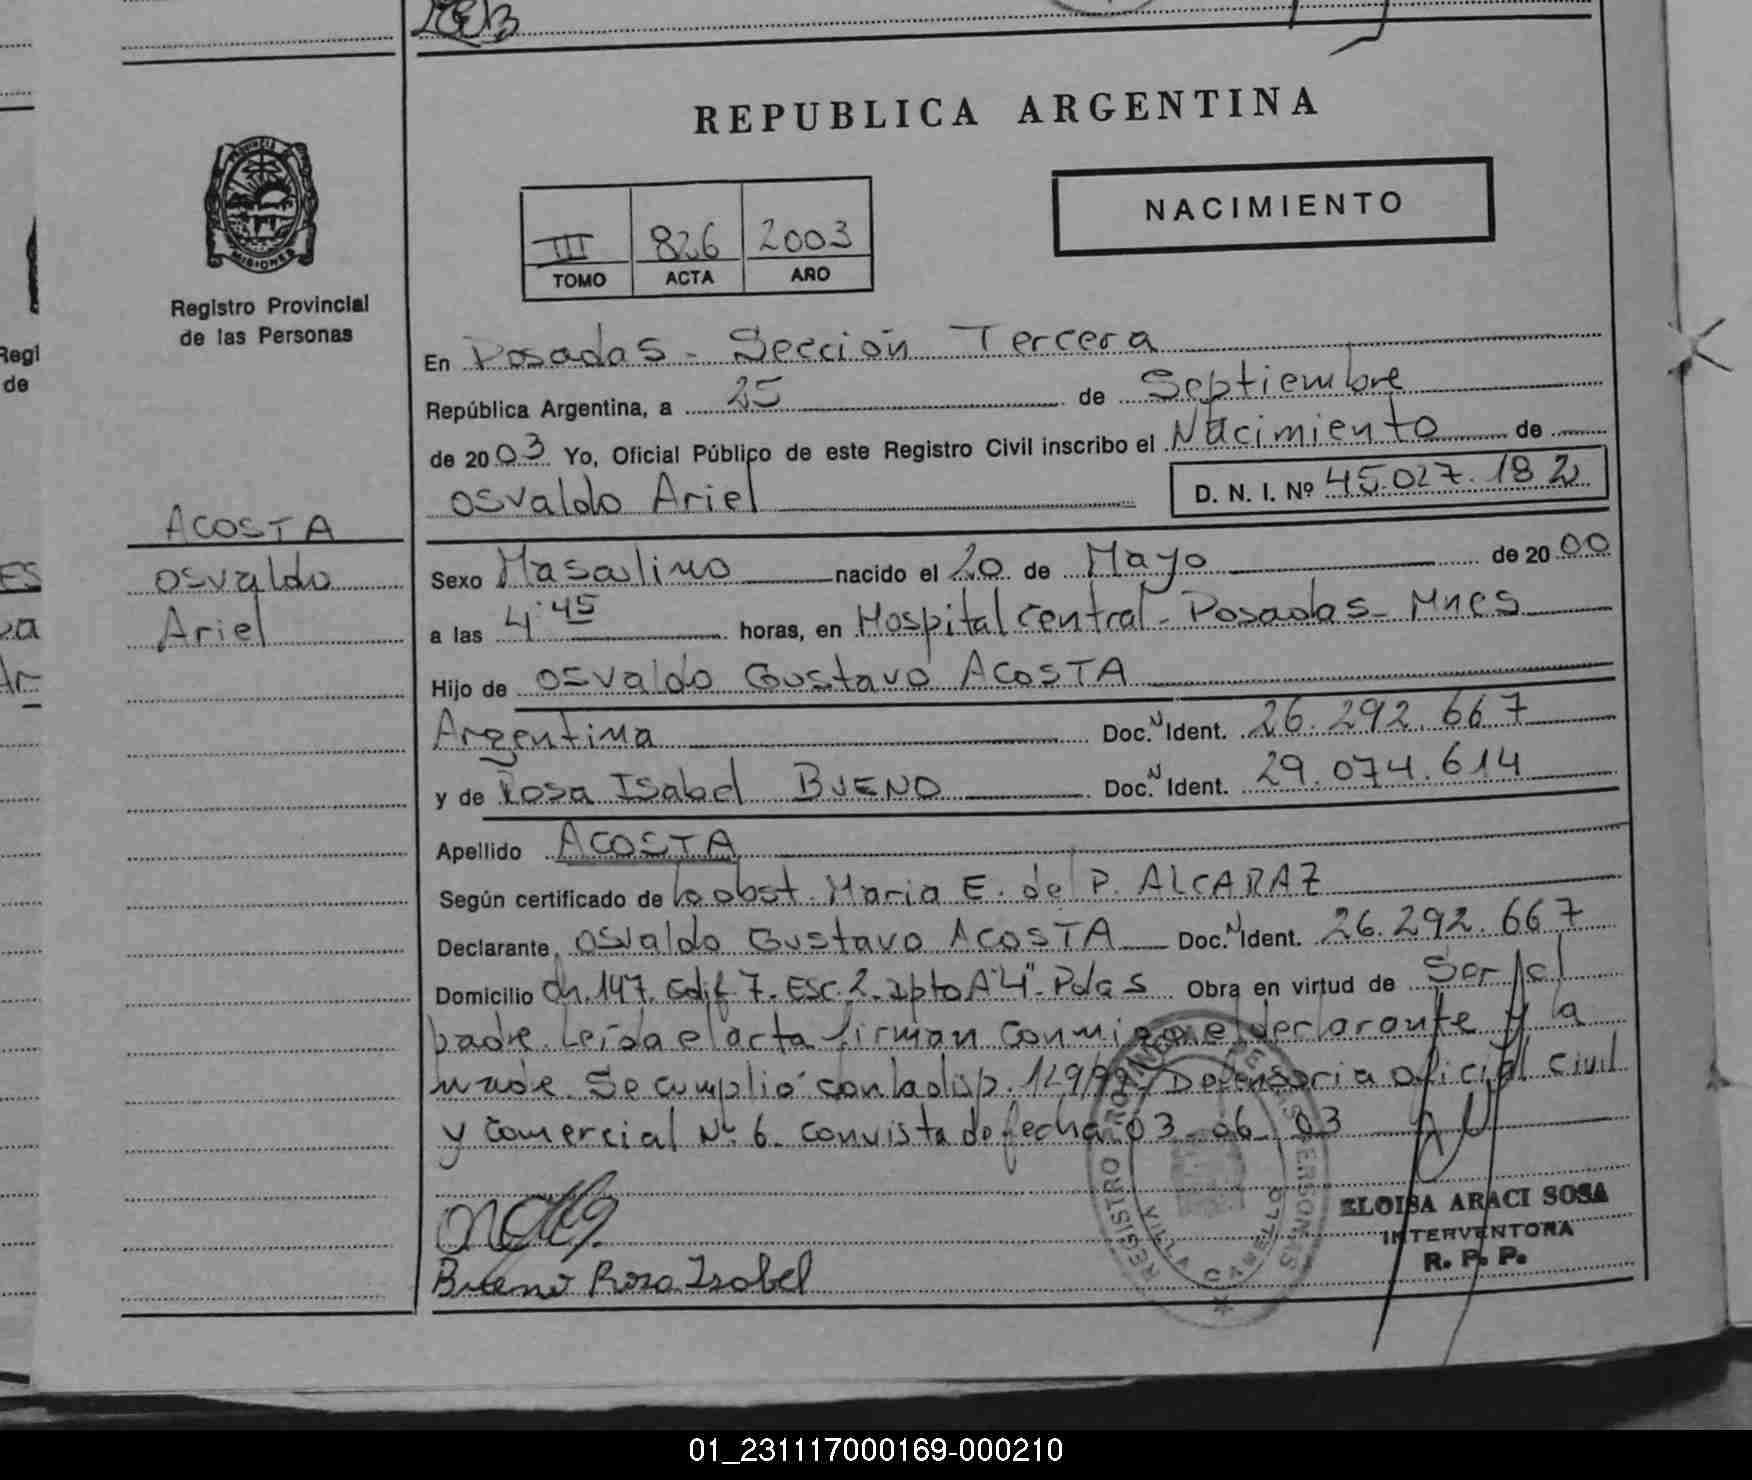 REPUBLICA ARGENTINA
NACIMIENTO
III 826 2003
TOMO ACTA AÑO
PROVINCIA DE MISIONES
Registro Provincial
de las Personas
ACOSTA
Osvaldo
Ariel
En Posadas - Sección Tercera
República Argentina, a 25 de Septiembre
de 2003 Yo, Oficial Público de este Registro Civil inscribo el Nacimiento de
Osvaldo Ariel D. N. I. Nº 45.027.182
Sexo Masculino nacido el 20 de Mayo de 2000
a las 4:45 horas, en Hospital Central - Posadas - Mnes
Hijo de Osvaldo Gustavo ACOSTA
Argentina Doc. N Ident. 26.292.667
y de Rosa Isabel BUENO Doc. N Ident. 29.074.614
Apellido ACOSTA
Según certificado de la obst. Maria E. del P. ALCARAZ
Declarante, Osvaldo Gustavo ACOSTA Doc. N Ident. 26.292.667
Domicilio Ch. 147. Edif 7. Esc. 2. Dpto A "4". Pdas Obra en virtud de Ser el
padre. Leída el acta firman conmigo el declarante y la
madre. Se cumplió con la disp. Defensoria oficial civil
y Comercial Nº 6. con vista de fecha 03-06-03
Bueno Rosa Isabel
REGISTRO PROVINCIAL DE LAS PERSONAS
VILLA CABELLO
ELOISA ARACI SOSA
INTERVENTORA
R. P. P.
Regi
de
01_231117000169-000210